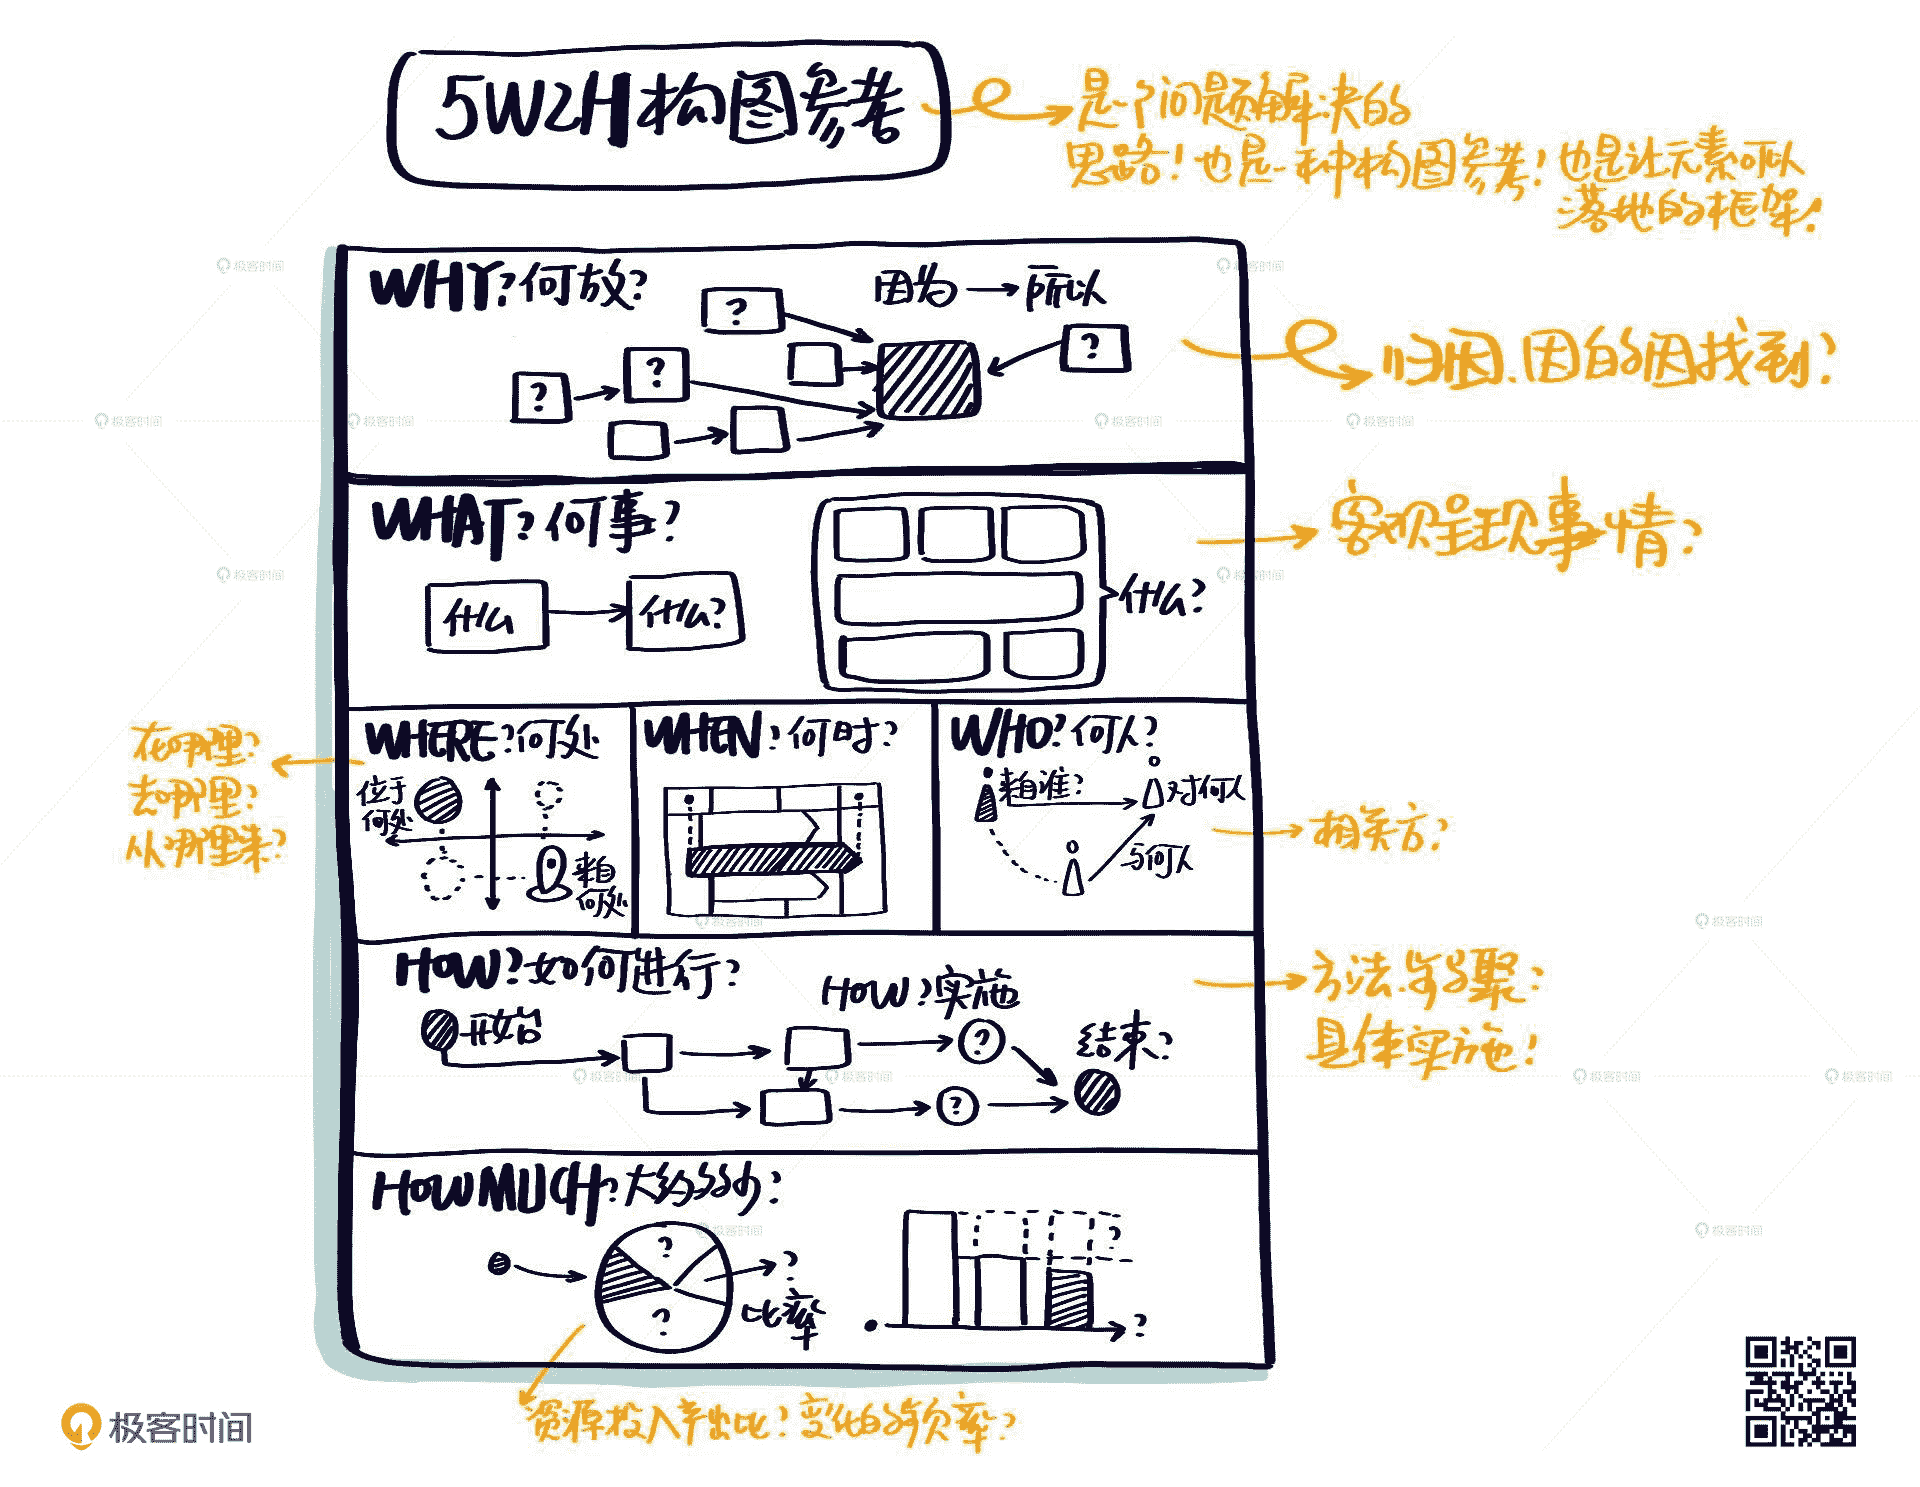 5W2H构图参考
是个问题解决的
思路！也是一种构图参考！也是让元素可以
落地的框架！
WHY?何故?
因为→所以
?
?
?
?
归因.因的因找到?
WHAT?何事?
什么
什么?
什么?
客观呈现事情?
WHERE?何处
位于
何处
来自
何处
在哪里?
去哪里?
从哪里来?
WHEN?何时?
WHO?何人?
来自谁?
对何人
与何人
相关方?
HOW?如何进行?
HOW?实施
开始
结束?
?
?
方法.步骤?
具体实施!
HOW MUCH?大约多少?
?
?
?
比率
?
?
资源投入产出比?变化的频率?
极客时间